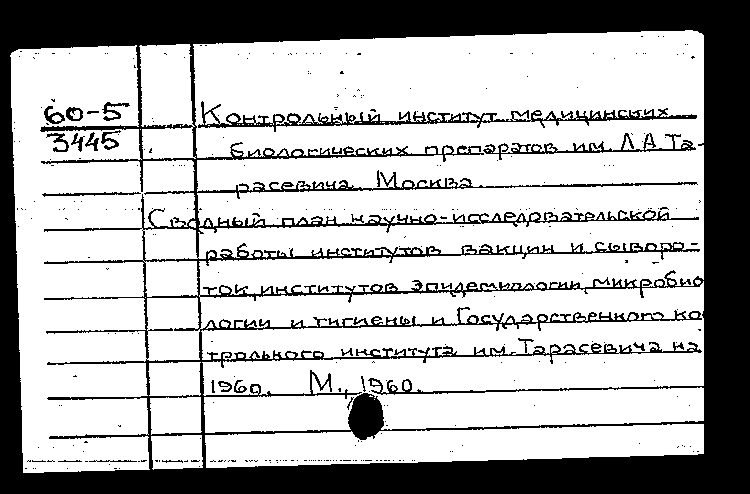 60-5
3445
Контрольный институт медицинских
биологических препаратов им. Л.А. Та-
расевича. Москва.
Сводный план научно-исследовательской
работы институтов вакцин и сыворо-
ток, институтов эпидемиологии, микробио
логии и гигиены и Государственного ко
трольного института им. Тарасевича на
1960. М., 1960.